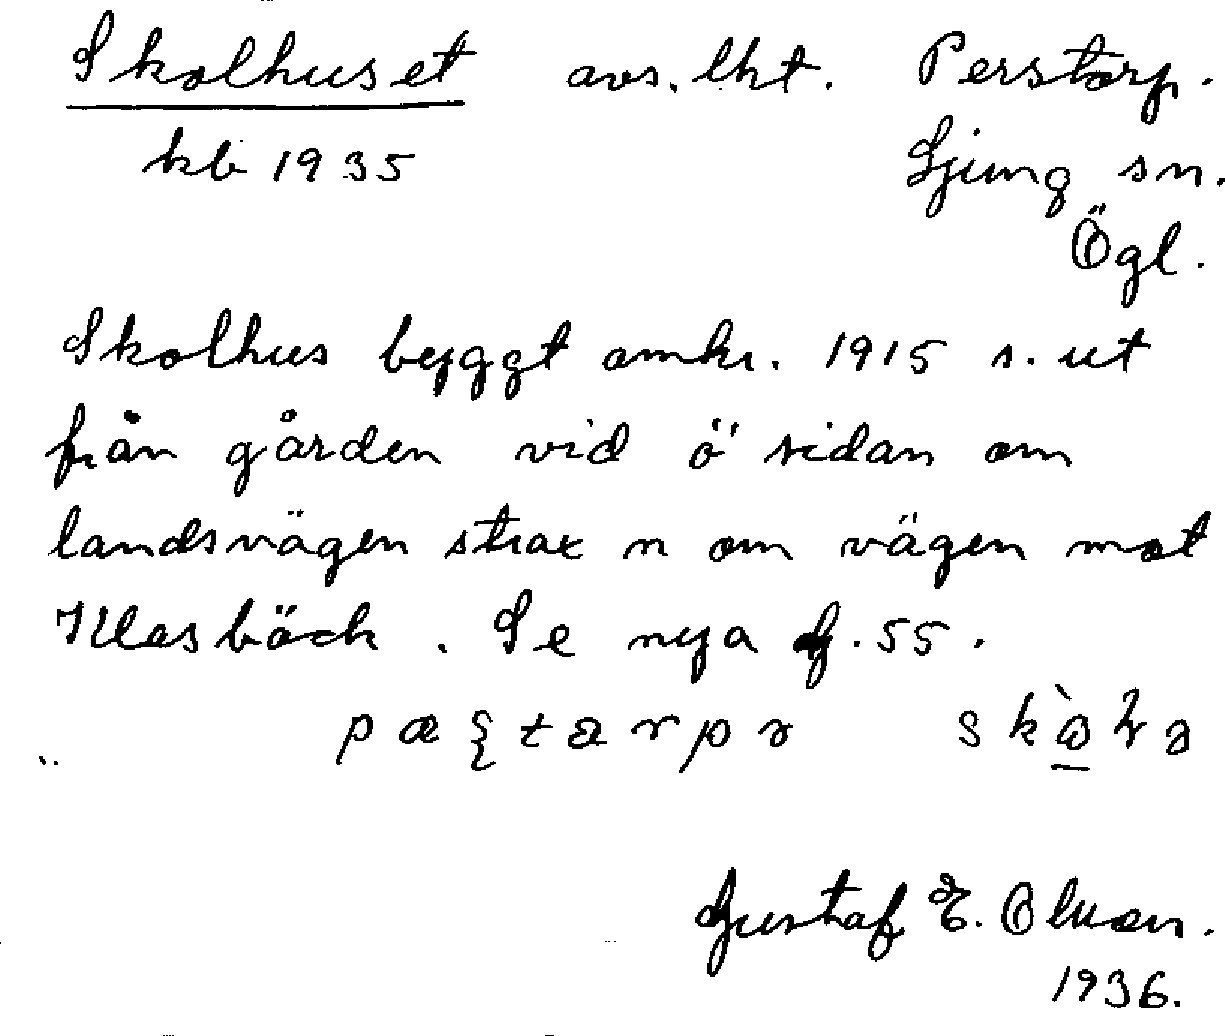 Skolhuset avs. lht. Perstorp.
kb 1935 Ljung sn.
Ögl.
Skolhus byggt omkr. 1915 s. ut
från gården vid ö sidan om
landsvägen strax n om vägen mot
Klasbäck. Se nya
55.
Gustaf E.
1936.